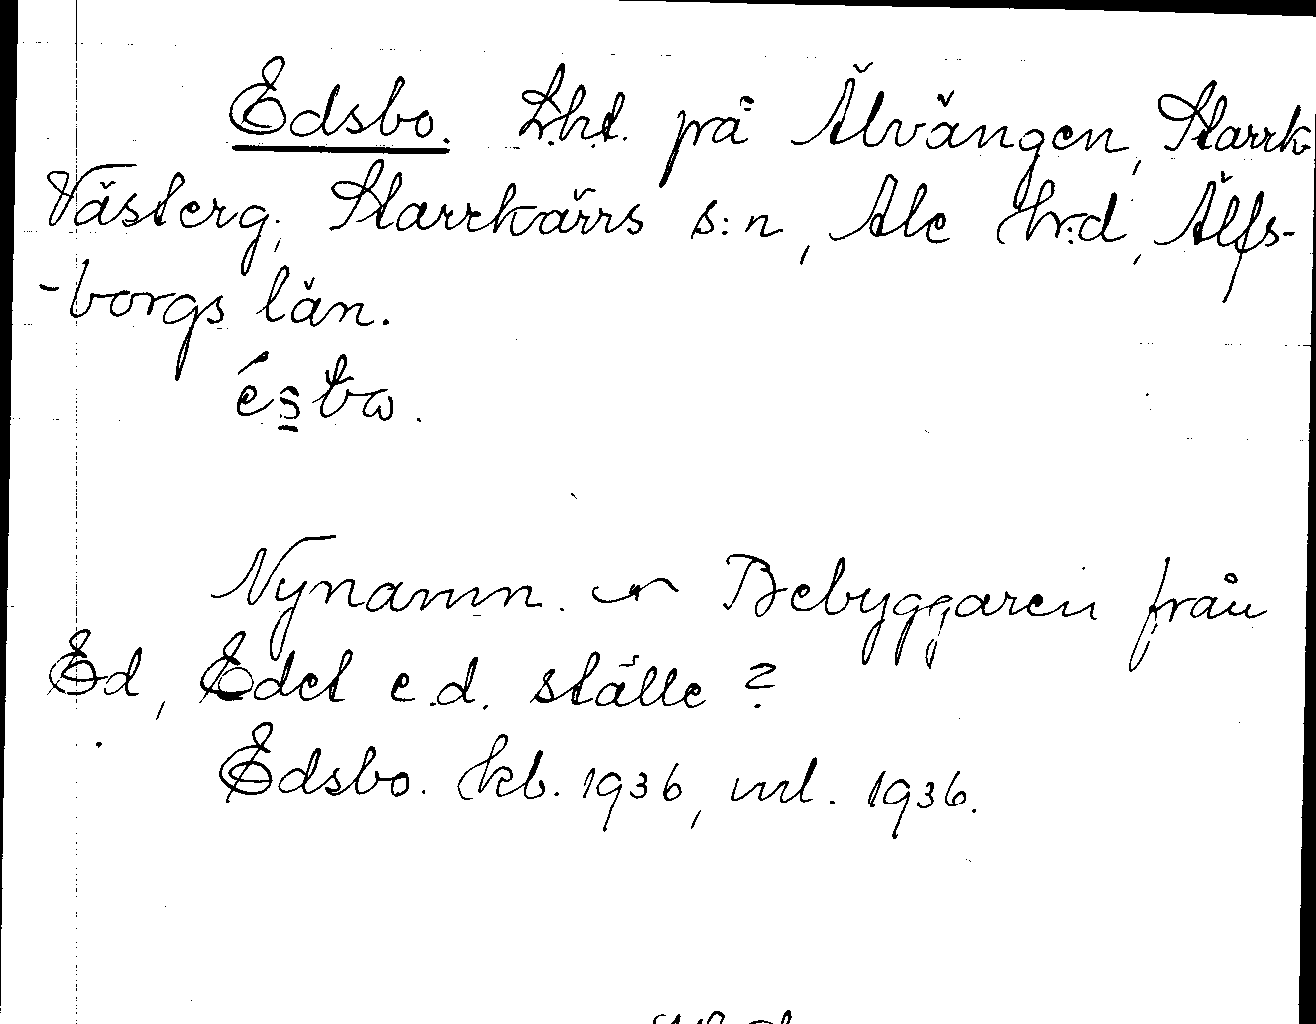 Edsbo. Lht. på Älvängen, Starrk
Västerg. Starrkärrs s:n, Ale hrd, Älfs-
-borgs län.
ésbω.
Nynamn. Bebyggaren från
Ed, Edet e.d. ställe?
Edsbo. kb. 1936, ml. 1936.